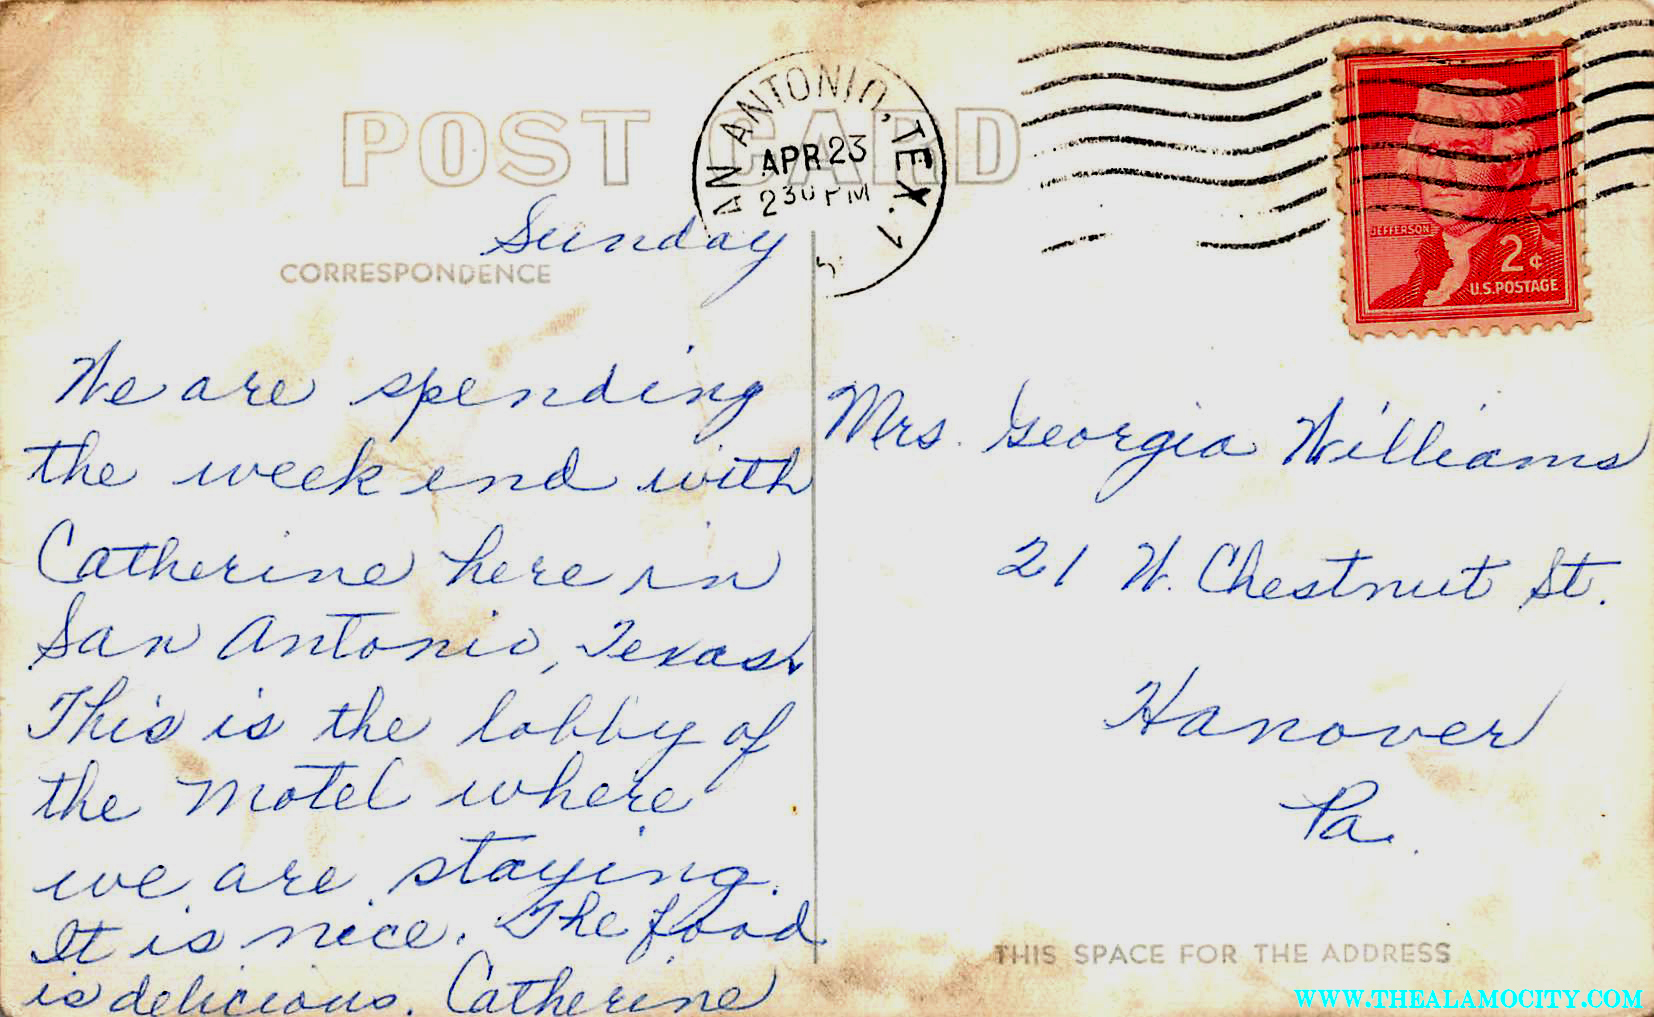 POST CARD
SAN ANTONIO, TEX.
APR 23
230 PM
JEFFERSON
2¢
U.S. POSTAGE
Sunday
CORRESPONDENCE
We are spending
the week end with
Catherine here in
San Antonio, Texas.
This is the lobby of
the Motel where
we are staying.
It is nice. The food
is delicious. Catherine
Mrs. Georgia Williams
21 W. Chestnut St.
Hanover
Pa.
THIS SPACE FOR THE ADDRESS
WWW.THEALAMOCITY.COM